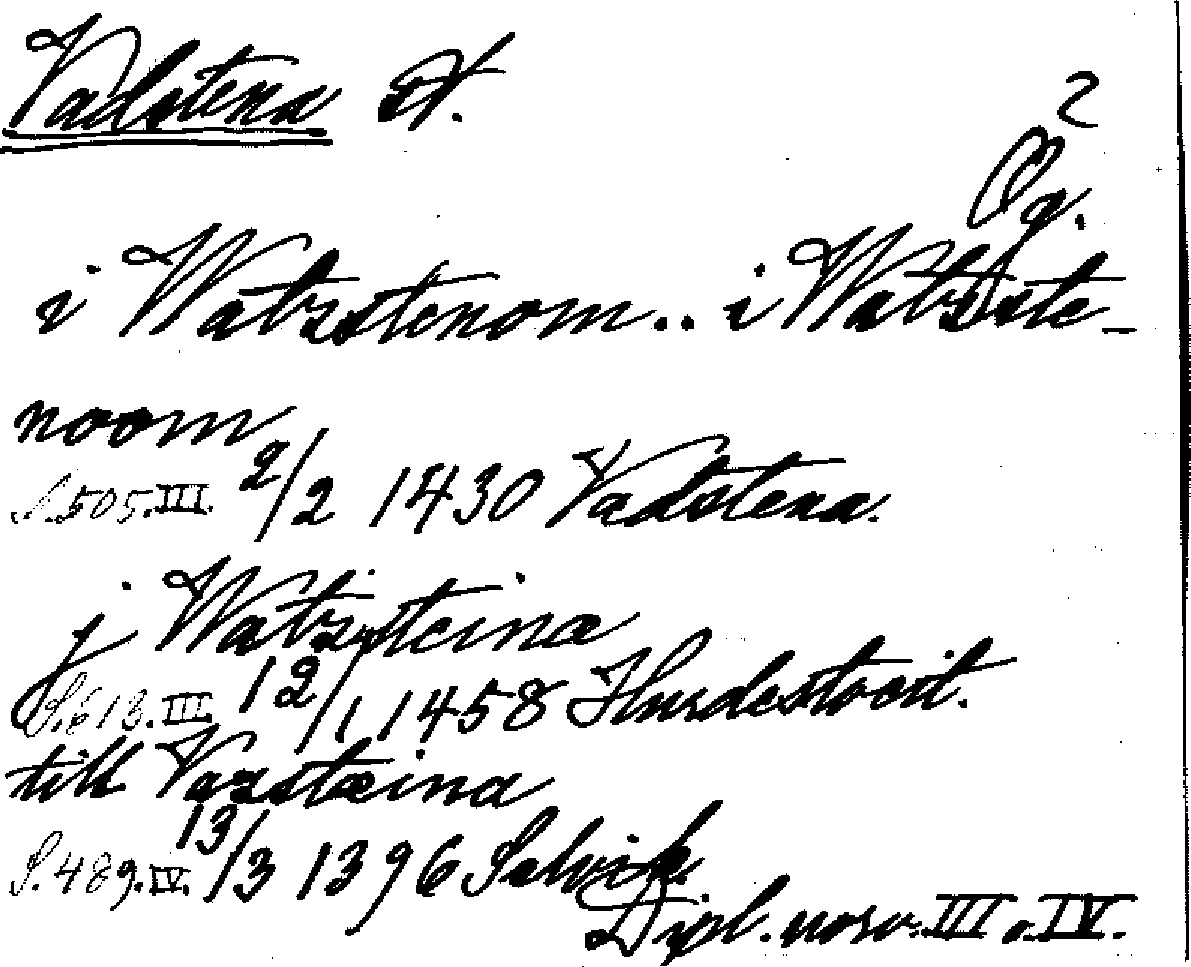 Vadstena st.
2
Ög.
i Watzstenom.. i Watzste-
noom
S. 505. III. 2/2 1430 Vadstena.
j Watzsteina
S. 613. III. 12/1 1458
till Vazstæina
S. 489. IV. 13/3 1396
Dipl. norv. III o. IV.